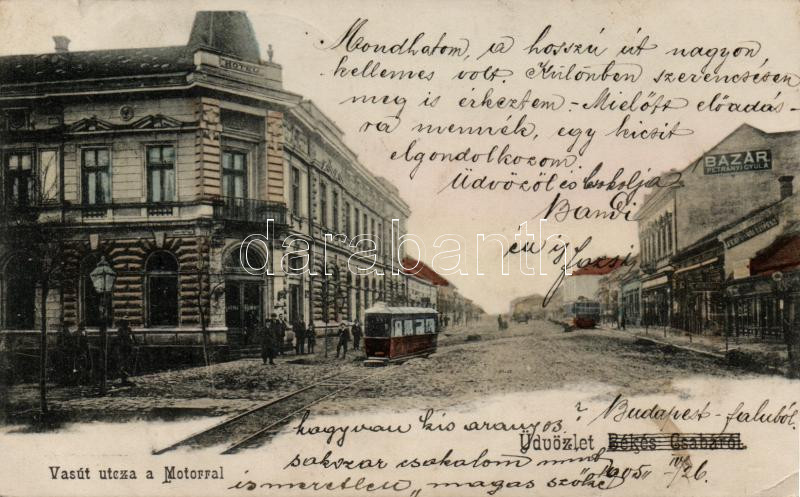 Mondhatom, a hosszú út nagyon
kellemes volt Különben szerencsésen
meg is érkeztem - Mielőtt előadás-
ra mennék, egy kicsit
elgondolkozom.
Üdvözöl és csókolja
Bandi
én is
HOTEL
BAZÁR
PETRÁNYI GYULA
darabanth.com
hogy van kis aranyos?
Budapest - faluból.
Üdvözlet Békés Csabáról
sokszor csókolom mint
1905 IV/26.
ismeretlen "magas szőke
Vasút utcza a Motorral